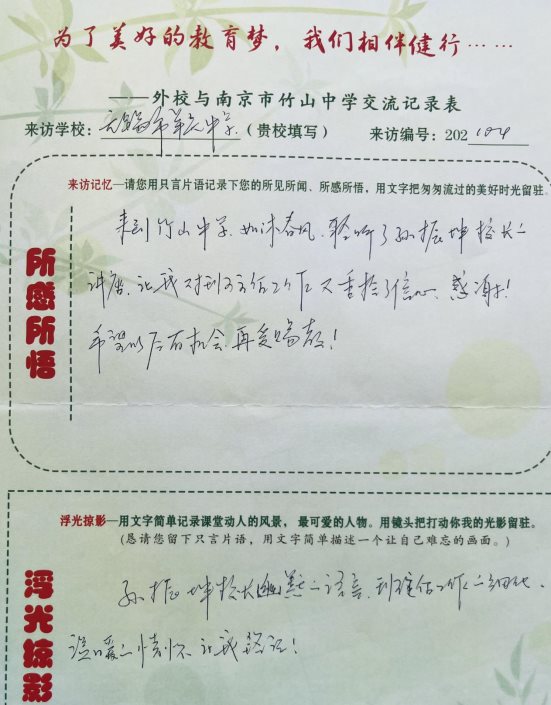 为了美好的教育梦，我们相伴健行……
——外校与南京市竹山中学交流记录表
来访学校：无锡市第 中学（贵校填写） 来访编号：202 104
来访记忆—请您用只言片语记录下您的所见所闻、所感所悟，用文字把匆匆流过的美好时光留驻。
所感所悟
来到竹山中学，如沐春风，聆听了孙振坤校长的
讲座，让我对班主任工作又重拾了信心，感谢！
希望以后有机会再受 教！
浮光掠影—用文字简单记录课堂动人的风景，最可爱的人物。用镜头把打动你我的光影留驻。
（恳请您留下只言片语，用文字简单描述一个让自己难忘的画面。）
浮光掠影
孙振坤校长幽默的语言，班主任工作的细致，
温暖的情怀让我铭记！